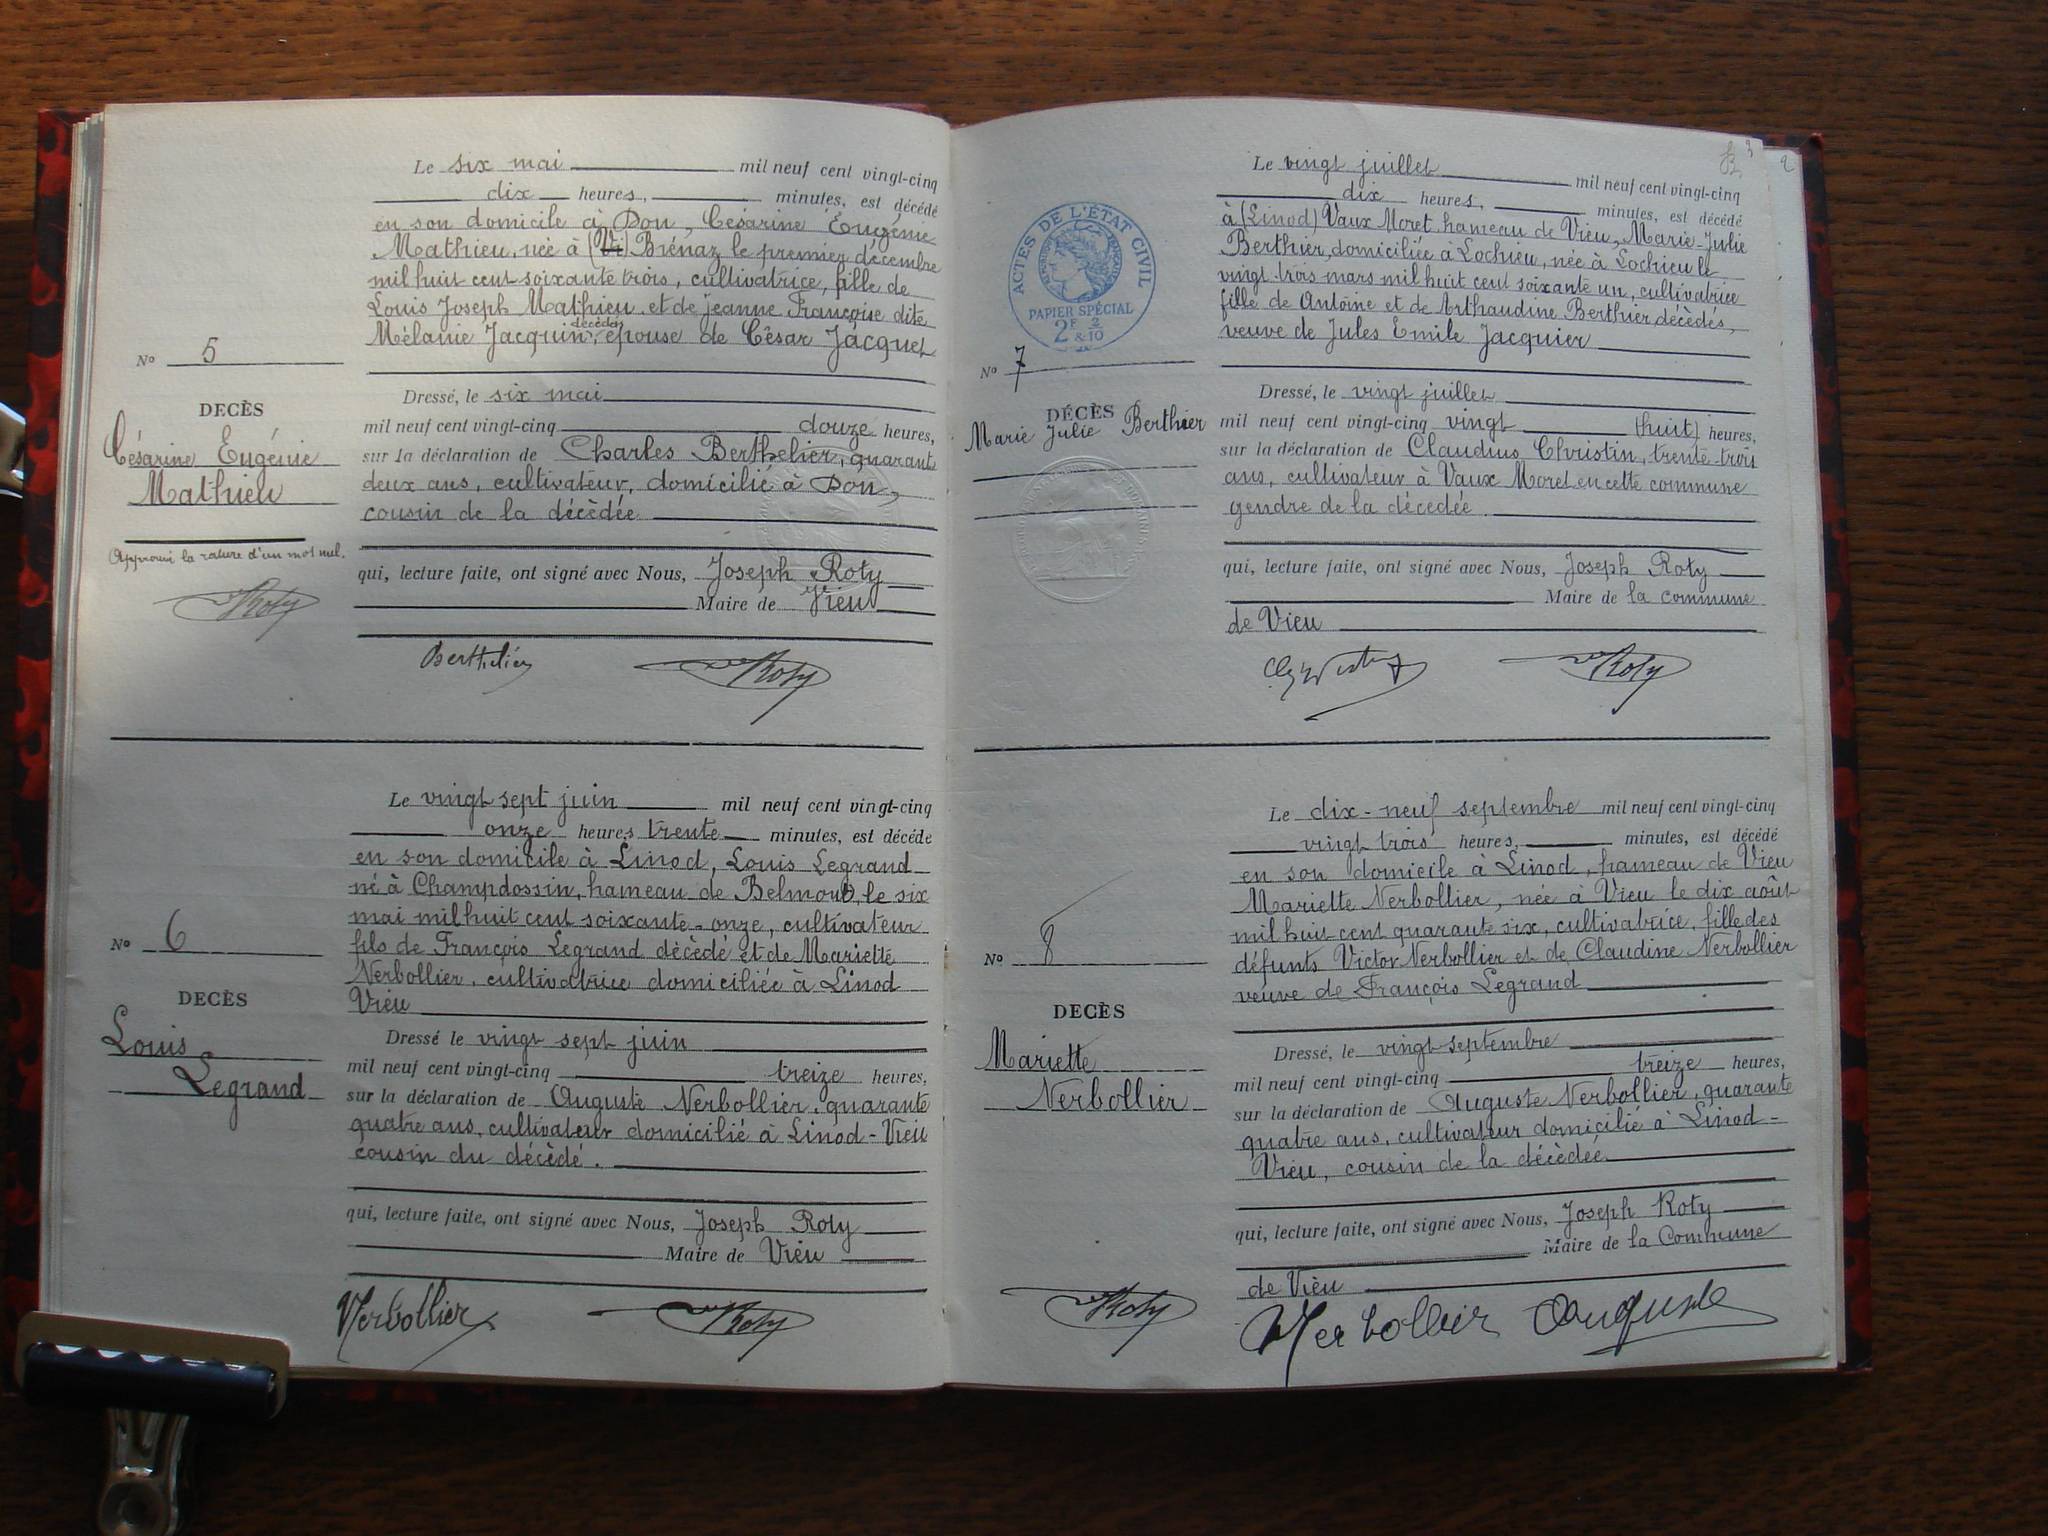 Le six mai mil neuf cent vingt-cinq
dix heures, minutes, est décédé
en son domicile à Don, Césarine Eugénie
Mathieu, née à (Vi) Brénaz le premier décembre
mil huit cent soixante trois, cultivatrice, fille de
Louis Joseph Mathieu et de jeanne Françoise dite
décédés
Mélanie Jacquin, épouse de César Jacquet
No 5
DECÈS
Césarine Eugénie
Mathieu
Approuvé la rature d'un mot nul.
Roty
Dressé, le six mai
mil neuf cent vingt-cinq douze heures,
sur la déclaration de Charles Berthelier, quarante
deux ans, cultivateur, domicilié à Don,
cousin de la décèdée
qui, lecture faite, ont signé avec Nous, Joseph Roty
Maire de Vieu
Berthelier Roty
Le vingt sept juin mil neuf cent vingt-cinq
onze heures trente minutes, est décédé
en son domicile à Linod, Louis Legrand
né à Champdossin, hameau de Belmont, le six
mai mil huit cent soixante-onze, cultivateur
fils de François Legrand décèdé et de Mariette
Nerbollier, cultivatrice domiciliée à Linod
Vieu
No 6
DECÈS
Louis
Legrand
Dressé le vingt sept juin
mil neuf cent vingt-cinq treize heures,
sur la déclaration de Auguste Nerbollier, quarante
quatre ans, cultivateur domicilié à Linod-Vieu
cousin du décèdé.
qui, lecture faite, ont signé avec Nous, Joseph Roty
Maire de Vieu
Nerbollier Roty
2
Le vingt juillet mil neuf cent vingt-cinq
dix heures, minutes, est décédé
à (Linod) Vaux Moret hameau de Vieu, Marie-Julie
Berthier, domiciliée à Lochieu, née à Lochieu le
vingt-trois mars mil huit cent soixante un, cultivatrice
fille de Antoine et de Arthaudine Berthier décèdés,
veuve de Jules Emile Jacquier
ACTES DE L'ÉTAT CIVIL
RÉPUBLIQUE FRANÇAISE
PAPIER SPÉCIAL
2F & 2/10
No 7
DÉCÈS
Marie Julie Berthier
Dressé, le vingt juillet
mil neuf cent vingt-cinq vingt (huit) heures,
sur la déclaration de Claudius Christin, trente-trois
ans, cultivateur à Vaux Moret en cette commune
gendre de la décedée
qui, lecture faite, ont signé avec Nous, Joseph Roty
Maire de la commune
de Vieu
Roty
Le dix-neuf septembre mil neuf cent vingt-cinq
vingt trois heures, minutes, est décédé
en son domicile à Linod, hameau de Vieu
Mariette Nerbollier, née à Vieu le dix août
mil huit cent quarante six, cultivatrice, fille des
défunts Victor Nerbollier et de Claudine Nerbollier
veuve de François Legrand
No 8
DECÈS
Mariette
Nerbollier
Dressé, le vingt septembre
mil neuf cent vingt-cinq treize heures,
sur la déclaration de Auguste Nerbollier, quarante
quatre ans, cultivateur domicilié à Linod-
Vieu, cousin de la décèdée
qui, lecture faite, ont signé avec Nous, Joseph Roty
Maire de la Commune
de Vieu
Roty Nerbollier Auguste